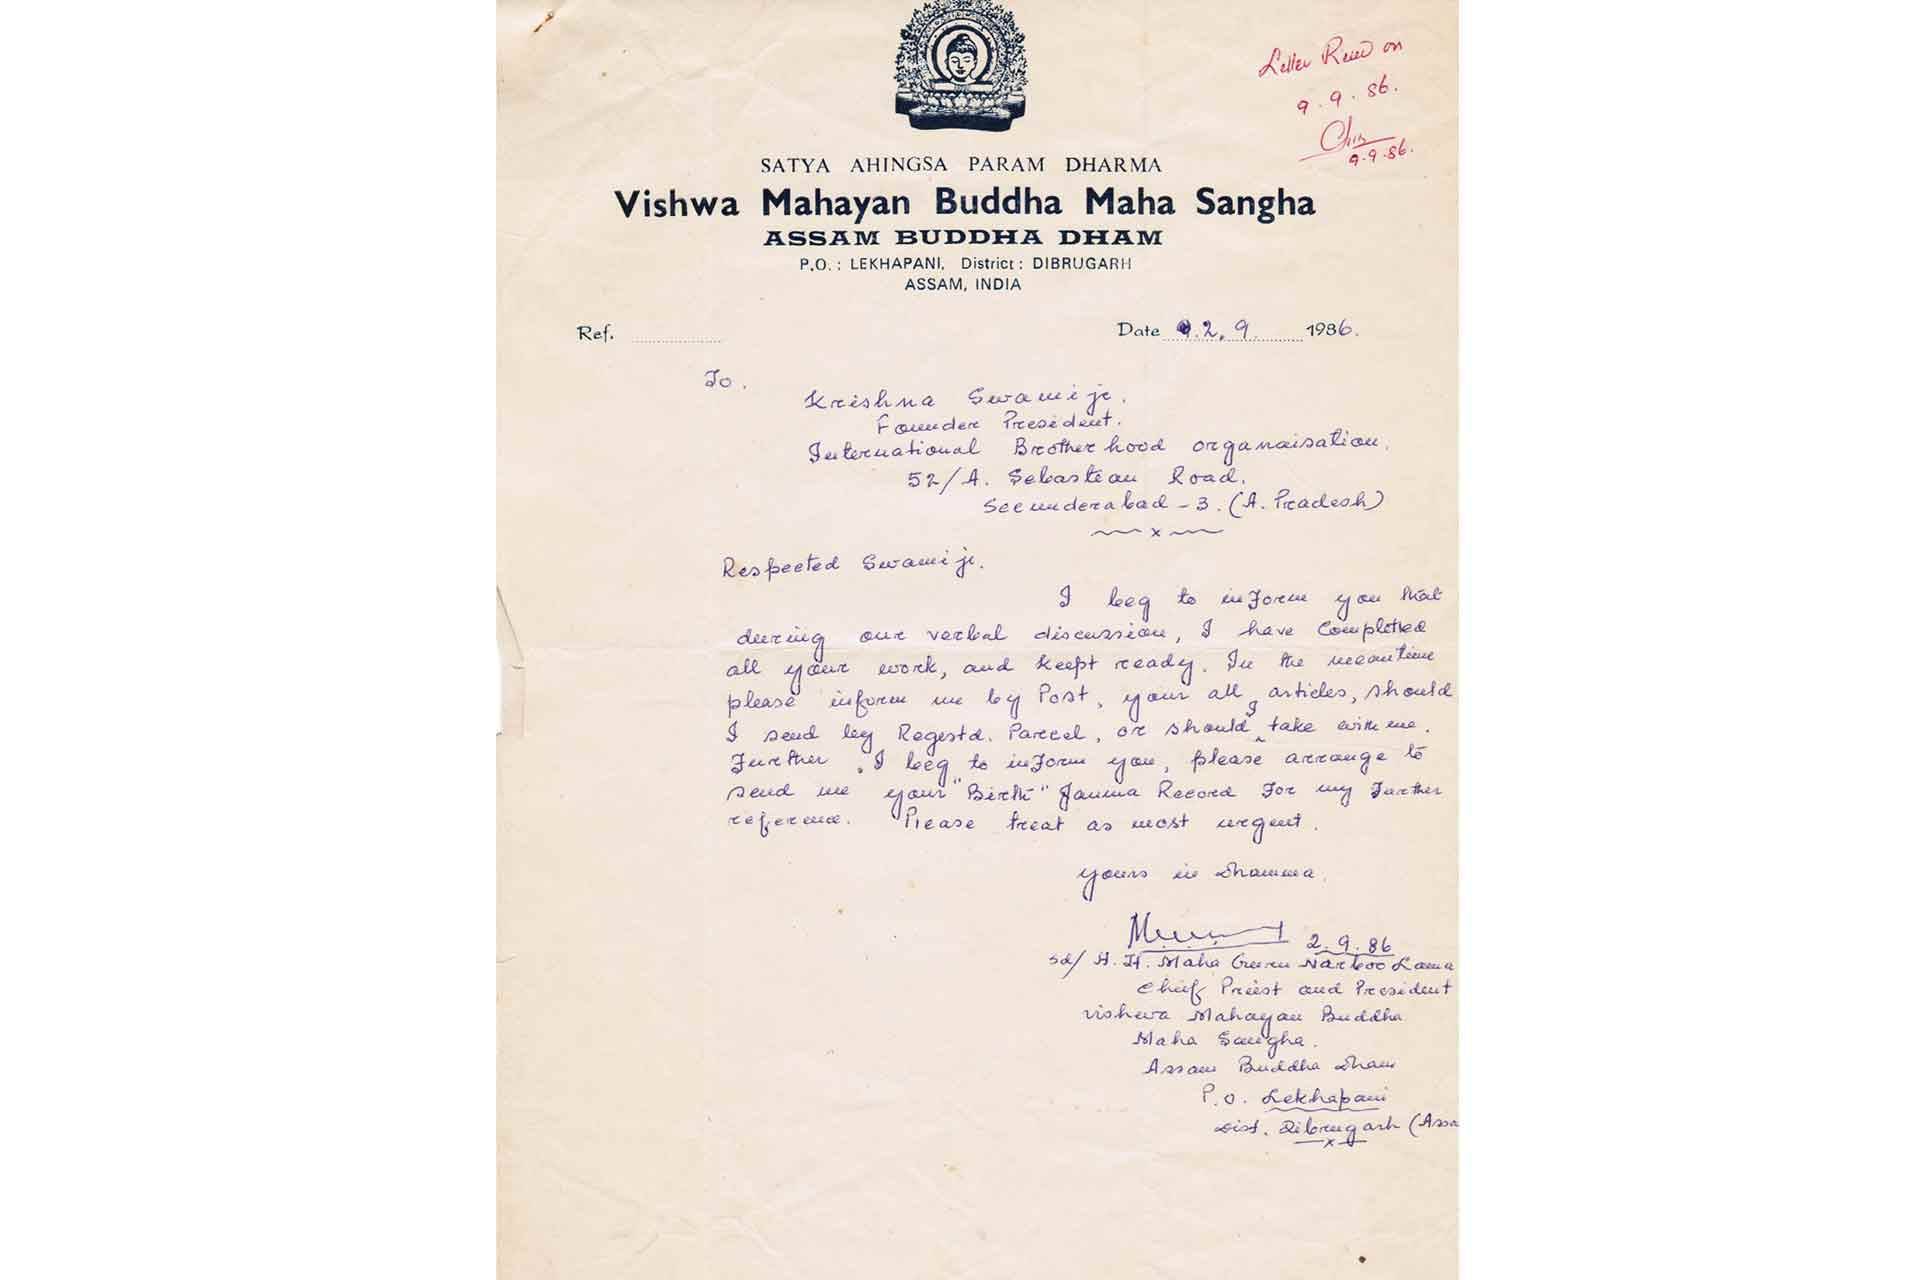 Letter Recd on
9.9.86.
9.9.86.
SATYA AHINGSA PARAM DHARMA
Vishwa Mahayan Buddha Maha Sangha
ASSAM BUDDHA DHAM
P.O. : LEKHAPANI, District : DIBRUGARH
ASSAM, INDIA
Ref. ............ Date 2.9. 1986.
To.
Krishna Swamiji.
Founder President.
International Brotherhood organaisation.
52/A. Sebastean Road.
Secunderabad - 3. (A. Pradesh)
~ x ~
Respected Swamiji.
I beg to inform you that
during our verbal discussion, I have Completed
all your work, and kept ready. In the meantime
please inform me by Post, your all articles, should
I send by Regestd. Parcel, or should I take with me.
Further, I beg to inform you, please arrange to
send me your "Birth" Janma Record For my Further
reference. Please treat as most urgent.
yours in Dhamma.
2.9.86
sd/ H.H. Maha Guru Narboo Lama
Chief Priest and President
Vishwa Mahayan Buddha
Maha Sangha.
Assam Buddha Dham
P.O. Lekhapani
Dist. Dibrugarh (Assa
x